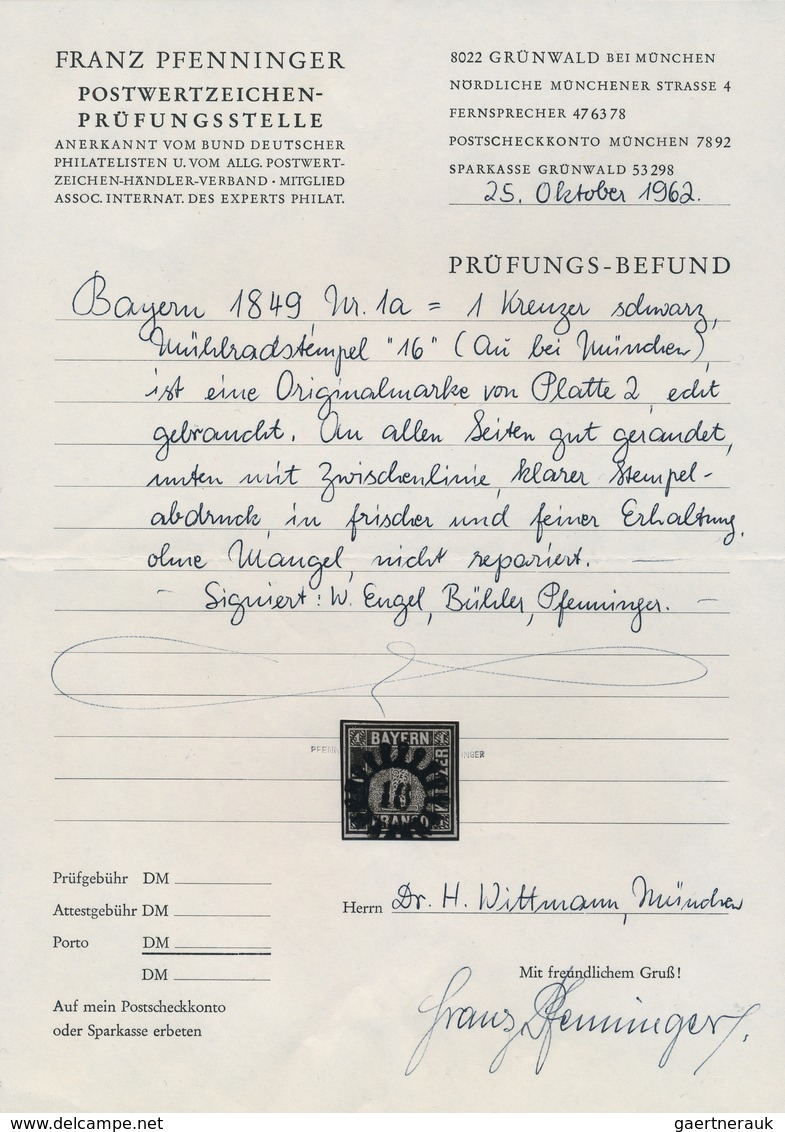 FRANZ PFENNINGER
POSTWERTZEICHEN-
PRÜFUNGSSTELLE
ANERKANNT VOM BUND DEUTSCHER
PHILATELISTEN U. VOM ALLG. POSTWERT-
ZEICHEN-HÄNDLER-VERBAND · MITGLIED
ASSOC. INTERNAT. DES EXPERTS PHILAT.
8022 GRÜNWALD BEI MÜNCHEN
NÖRDLICHE MÜNCHENER STRASSE 4
FERNSPRECHER 476378
POSTSCHECKKONTO MÜNCHEN 7892
SPARKASSE GRÜNWALD 53298
25. Oktober 1962.
PRÜFUNGS-BEFUND
Bayern 1849 Nr. 1a = 1 Kreuzer schwarz,
Mühlradstempel "16" (Au bei München),
ist eine Originalmarke von Platte 2, echt
gebraucht. An allen Seiten gut gerandet,
unten mit Zwischenlinie, klarer Stempel-
abdruck, in frischer und feiner Erhaltung,
ohne Mängel, nicht repariert. —
— Signiert: W. Engel, Bühler, Pfenninger. —
BAYERN
PFENN INGER
16
FRANCO
Prüfgebühr DM
Attestgebühr DM
Porto DM
DM
Auf mein Postscheckkonto
oder Sparkasse erbeten
Herrn Dr. H. Wittmann, München
Mit freundlichem Gruß!
Franz Pfenninger.
Delcampe.net
gaertnerauk